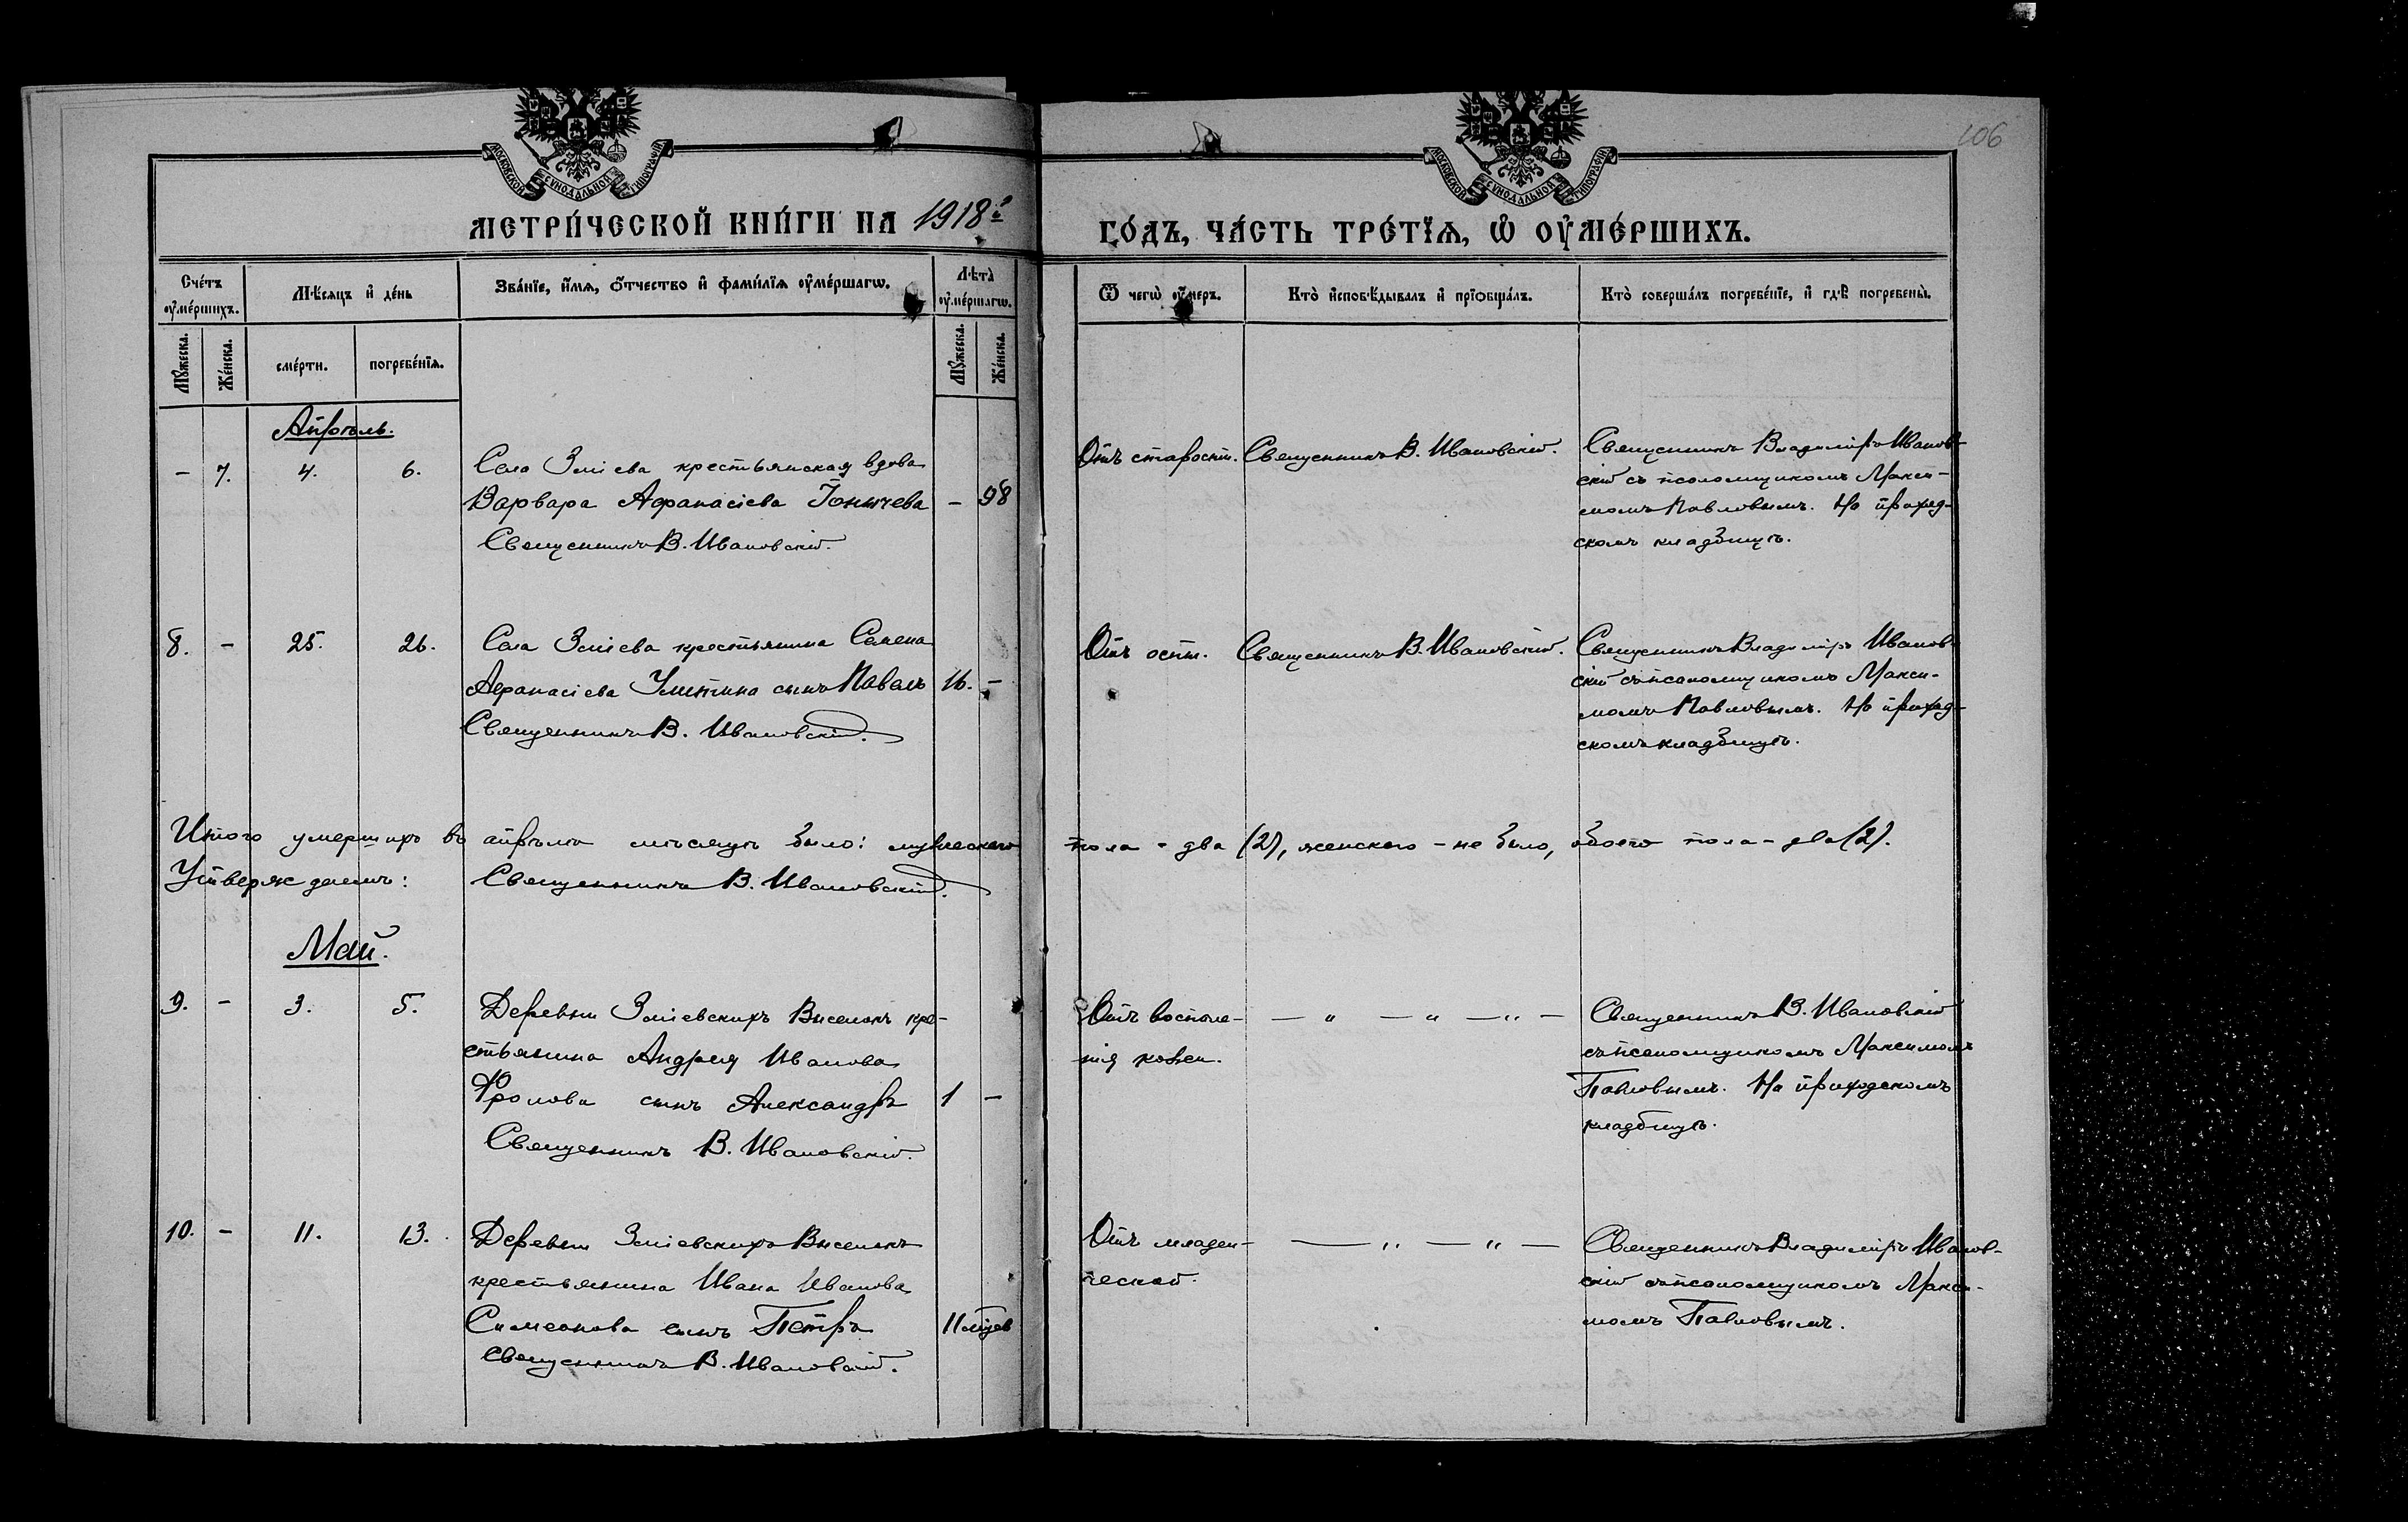 106
МОСКОВСКОЙ СѴНОДАЛЬНОЙ ТИПОГРАФІИ
МОСКОВСКОЙ СѴНОДАЛЬНОЙ ТИПОГРАФІИ
МЕТРИ́ЧЕСКОЙ КНИ́ГИ НА 1918й
ГО́ДЪ, ЧА́СТЬ ТРЕ́ТЇѦ, Ѡ҆ ОУ҆МЕ́РШИХЪ.
Сче́тъ оу҆ме́ршихъ.
Мѣ́сяцъ и҆ де́нь
Зва́нїе, и҆́мѧ, ѻ҆́тчество и҆ фами́лїѧ оу҆ме́ршагѡ.
Лѣ́та оу҆ме́ршагѡ.
Ѿ чегѡ̀ оу҆́меръ.
Кто̀ и҆сповѣ́дывалъ и҆ прїѻбща́лъ.
Кто̀ соверша́лъ погребе́нїе, и҆ гдѣ̀ погребены̀.
Мꙋ́жеска.
Же́нска.
сме́рти.
погребе́нїѧ.
Мꙋ́жеска.
Же́нска.
Апрѣль.
– 7. 4. 6. Села Зміева крестьянская вдова
Варвара Афанасіева – 98
Священникъ В. Ивановскій.
Отъ старости. Священникъ В. Ивановскій. Священникъ Владиміръ Иванов-
скій съ псаломщикомъ Макси-
момъ Павловымъ. На приход-
скомъ кладбищѣ.
8. – 25. 26. Села Зміева крестьянина Семена
Афанасіева сынъ Павелъ 16. –
Священникъ В. Ивановскій.
Отъ оспы. Священникъ В. Ивановскій. Священникъ Владиміръ Иванов-
скій съ псаломщикомъ Макси-
момъ Павловымъ. На приход-
скомъ кладбищѣ.
Итого умершихъ въ апрѣлѣ мѣсяцѣ было: мужескаго пола – два (2), женскаго – не было, обоего пола – два (2).
Утверждаемъ: Священникъ В. Ивановскій.
Май.
9. – 3. 5. Деревни Зміевскихъ Выселокъ кре-
стьянина Андрея Иванова
Фролова сынъ Александръ 1 –
Священникъ В. Ивановскій.
Отъ воспале- — „ — „ — „ — Священникъ В. Ивановскій
нія кожи. съ псаломщикомъ Максимомъ
Павловымъ. На приходскомъ
кладбищѣ.
10. – 11. 13. Деревни Зміевскихъ Выселокъ
крестьянина Ивана Иванова
Симеонова сынъ Петръ 11 мѣсяцев
Священникъ В. Ивановскій.
Отъ младен- — „ — „ — Священникъ Владиміръ Иванов-
ческой. скій съ псаломщикомъ Макси-
момъ Павловымъ.